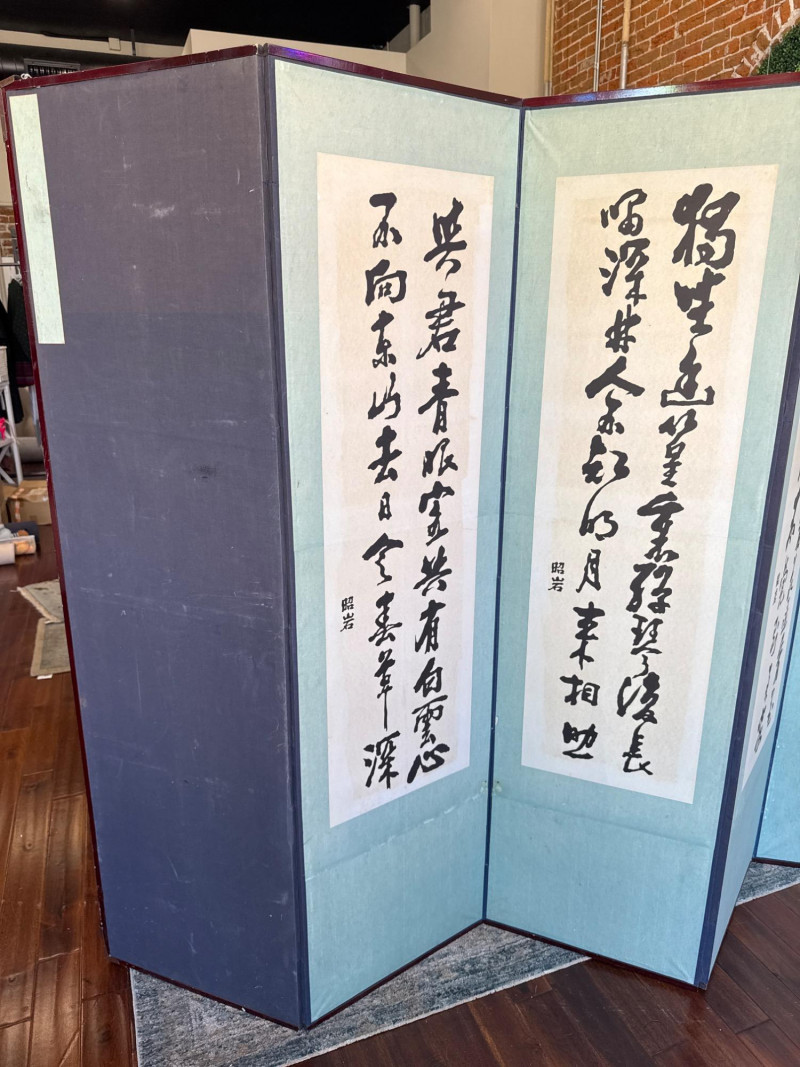 獨坐幽篁裏彈琴復長
嘯深林人不知明月来相照
昭岩
與君青眼客共有白雲心
不向東山去日令春草深
昭岩